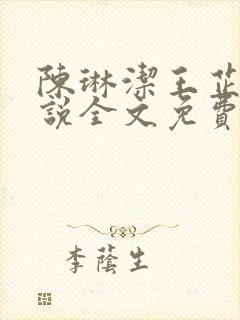 陳琳潔王芷
說全文免費
李蔭生